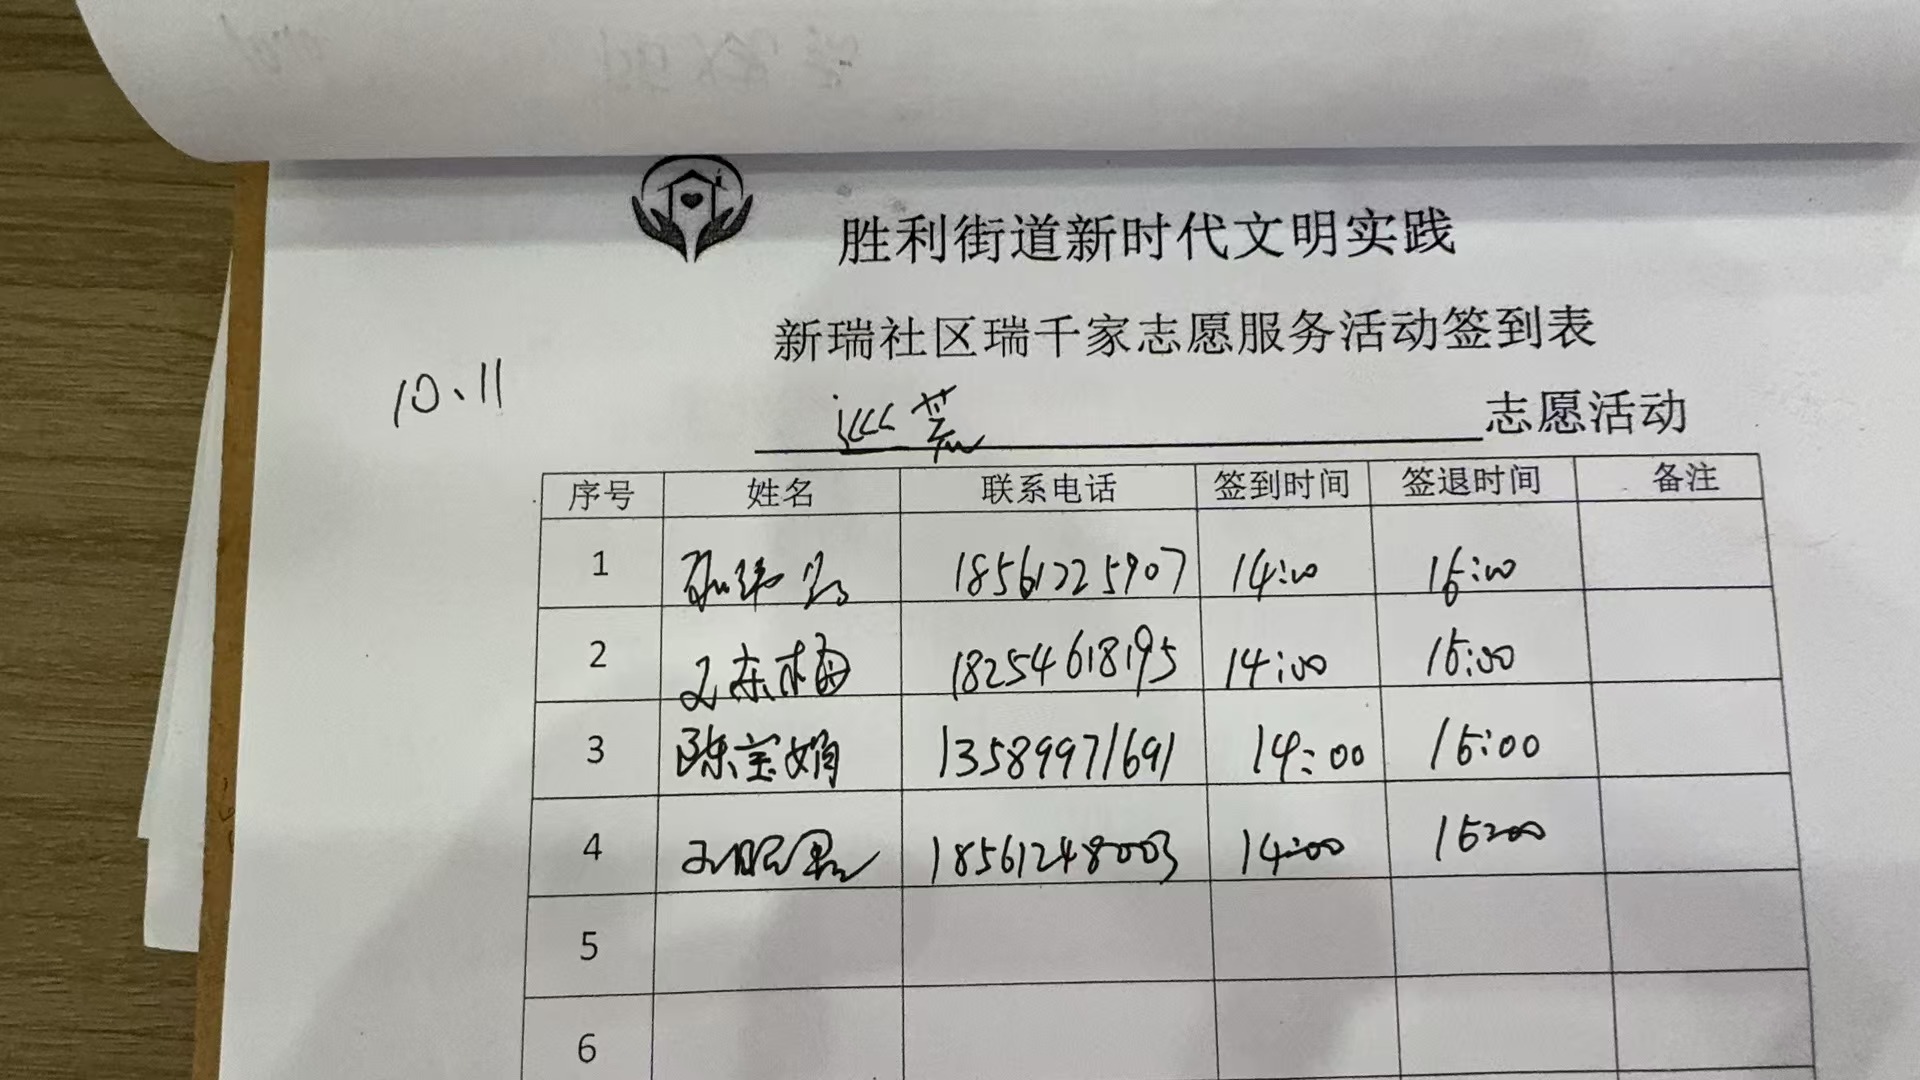 胜利街道新时代文明实践
新瑞社区瑞千家志愿服务活动签到表
10、11
巡荒 志愿活动
序号 姓名 联系电话 签到时间 签退时间 备注
1 18561225907 14:00 16:00
2 王东梅 18254618195 14:00 16:00
3 陈宝娟 13589971691 14:00 16:00
4 18561248003 14:00 16:00
5
6